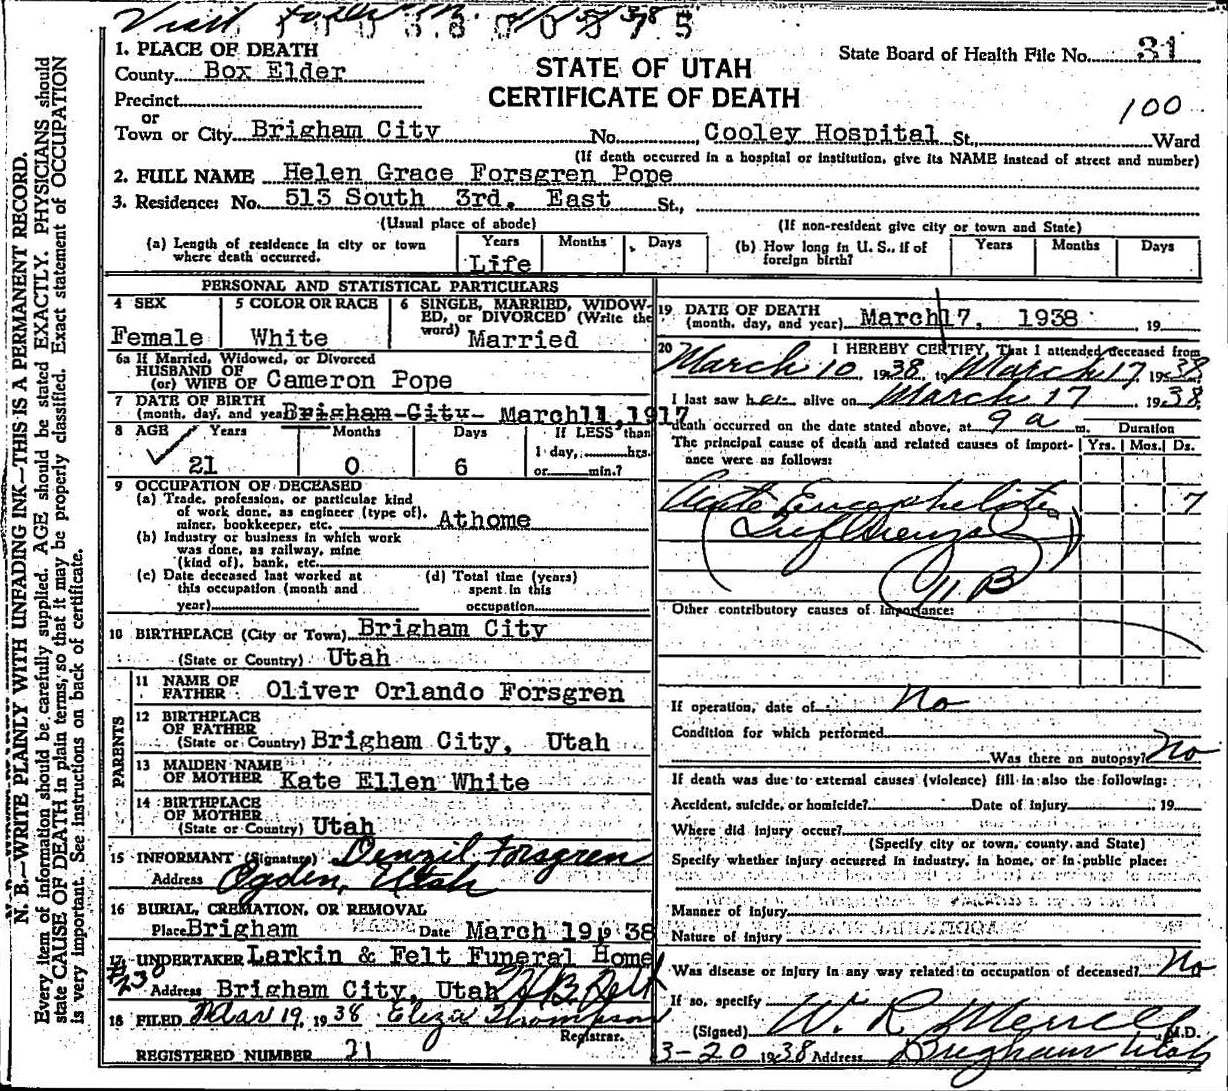 Visit
1. PLACE OF DEATH
County Box Elder
Precinct
or
Town or City Brigham City No. Cooley Hospital St., Ward
STATE OF UTAH
CERTIFICATE OF DEATH
State Board of Health File No. 31
100
(If death occurred in a hospital or institution, give its NAME instead of street and number)
2. FULL NAME Helen Grace Forsgren Pope
3. Residence: No. 513 South 3rd. East St.,
(Usual place of abode) (If non-resident give city or town and State)
(a) Length of residence in city or town where death occurred. Years Months Days
Life
(b) How long in U. S., if of foreign birth? Years Months Days
PERSONAL AND STATISTICAL PARTICULARS
4 SEX
Female
5 COLOR OR RACE
White
6 SINGLE, MARRIED, WIDOW-
ED, or DIVORCED (Write the
word) Married
6a If Married, Widowed, or Divorced
HUSBAND OF
(or) WIFE OF Cameron Pope
7 DATE OF BIRTH
(month, day, and year) Brigham City March 11, 1917
8 AGE Years Months Days If LESS than
1 day, hrs.
or min.?
21 0 6
9 OCCUPATION OF DECEASED
(a) Trade, profession, or particular kind
of work done, as engineer (type of),
miner, bookkeeper, etc. Athome
(b) Industry or business in which work
was done, as railway, mine
(kind of), bank, etc.
(c) Date deceased last worked at
this occupation (month and
year)
(d) Total time (years)
spent in this
occupation
10 BIRTHPLACE (City or Town) Brigham City
(State or Country) Utah
PARENTS
11 NAME OF
FATHER Oliver Orlando Forsgren
12 BIRTHPLACE
OF FATHER
(State or Country) Brigham City, Utah
13 MAIDEN NAME
OF MOTHER Kate Ellen White
14 BIRTHPLACE
OF MOTHER
(State or Country) Utah
15 INFORMANT (Signature) Denzil Forsgren
Address Ogden, Utah
16 BURIAL, CREMATION, OR REMOVAL
Place Brigham Date March 19, 1938
17 UNDERTAKER Larkin & Felt Funeral Home
#230
Address Brigham City, Utah H B Felt
18 FILED Mar 19, 1938 Eliza Thompson
Registrar.
REGISTERED NUMBER 21
19 DATE OF DEATH
(month, day, and year) March 17, 1938 19
20 I HEREBY CERTIFY, That I attended deceased from
March 10 1938, to March 17 1938
I last saw her alive on March 17 1938
death occurred on the date stated above, at 9 a m. Duration
The principal cause of death and related causes of import-
ance were as follows: Yrs. Mos. Ds.
Acute Encephelites 7
(Influenzal)
Other contributory causes of importance:
If operation, date of No
Condition for which performed
Was there an autopsy? No
If death was due to external causes (violence) fill in also the following:
Accident, suicide, or homicide? Date of injury 19
Where did injury occur?
(Specify city or town, county, and State)
Specify whether injury occurred in industry, in home, or in public place:
Manner of injury
Nature of injury
Was disease or injury in any way related to occupation of deceased? No
If so, specify
(Signed) W. R. Merrell M.D.
3-20 1938 Address Brigham Utah
N. B.—WRITE PLAINLY WITH UNFADING INK—THIS IS A PERMANENT RECORD.
Every item of information should be carefully supplied. AGE should be stated EXACTLY. PHYSICIANS should
state CAUSE OF DEATH in plain terms, so that it may be properly classified. Exact statement of OCCUPATION
is very important. See instructions on back of certificate.